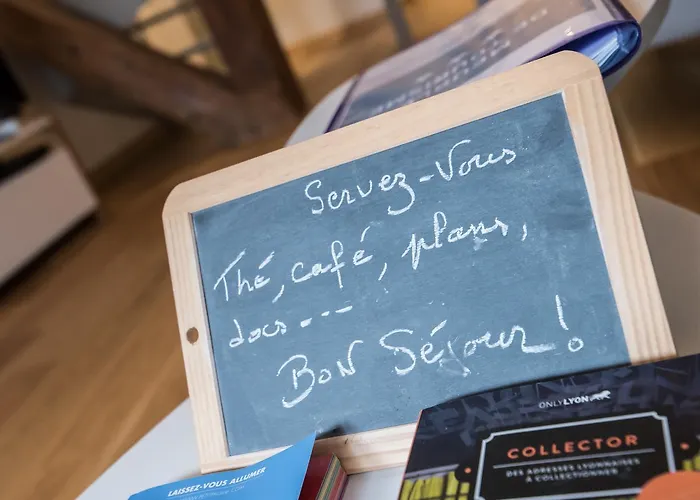 Servez-Vous
Thé, café, plans,
docs---
Bon Séjour!
ONLYLYON
COLLECTOR
DES ADRESSES LYONNAISES
À COLLECTIONNER
LAISSEZ-VOUS ALLUMER